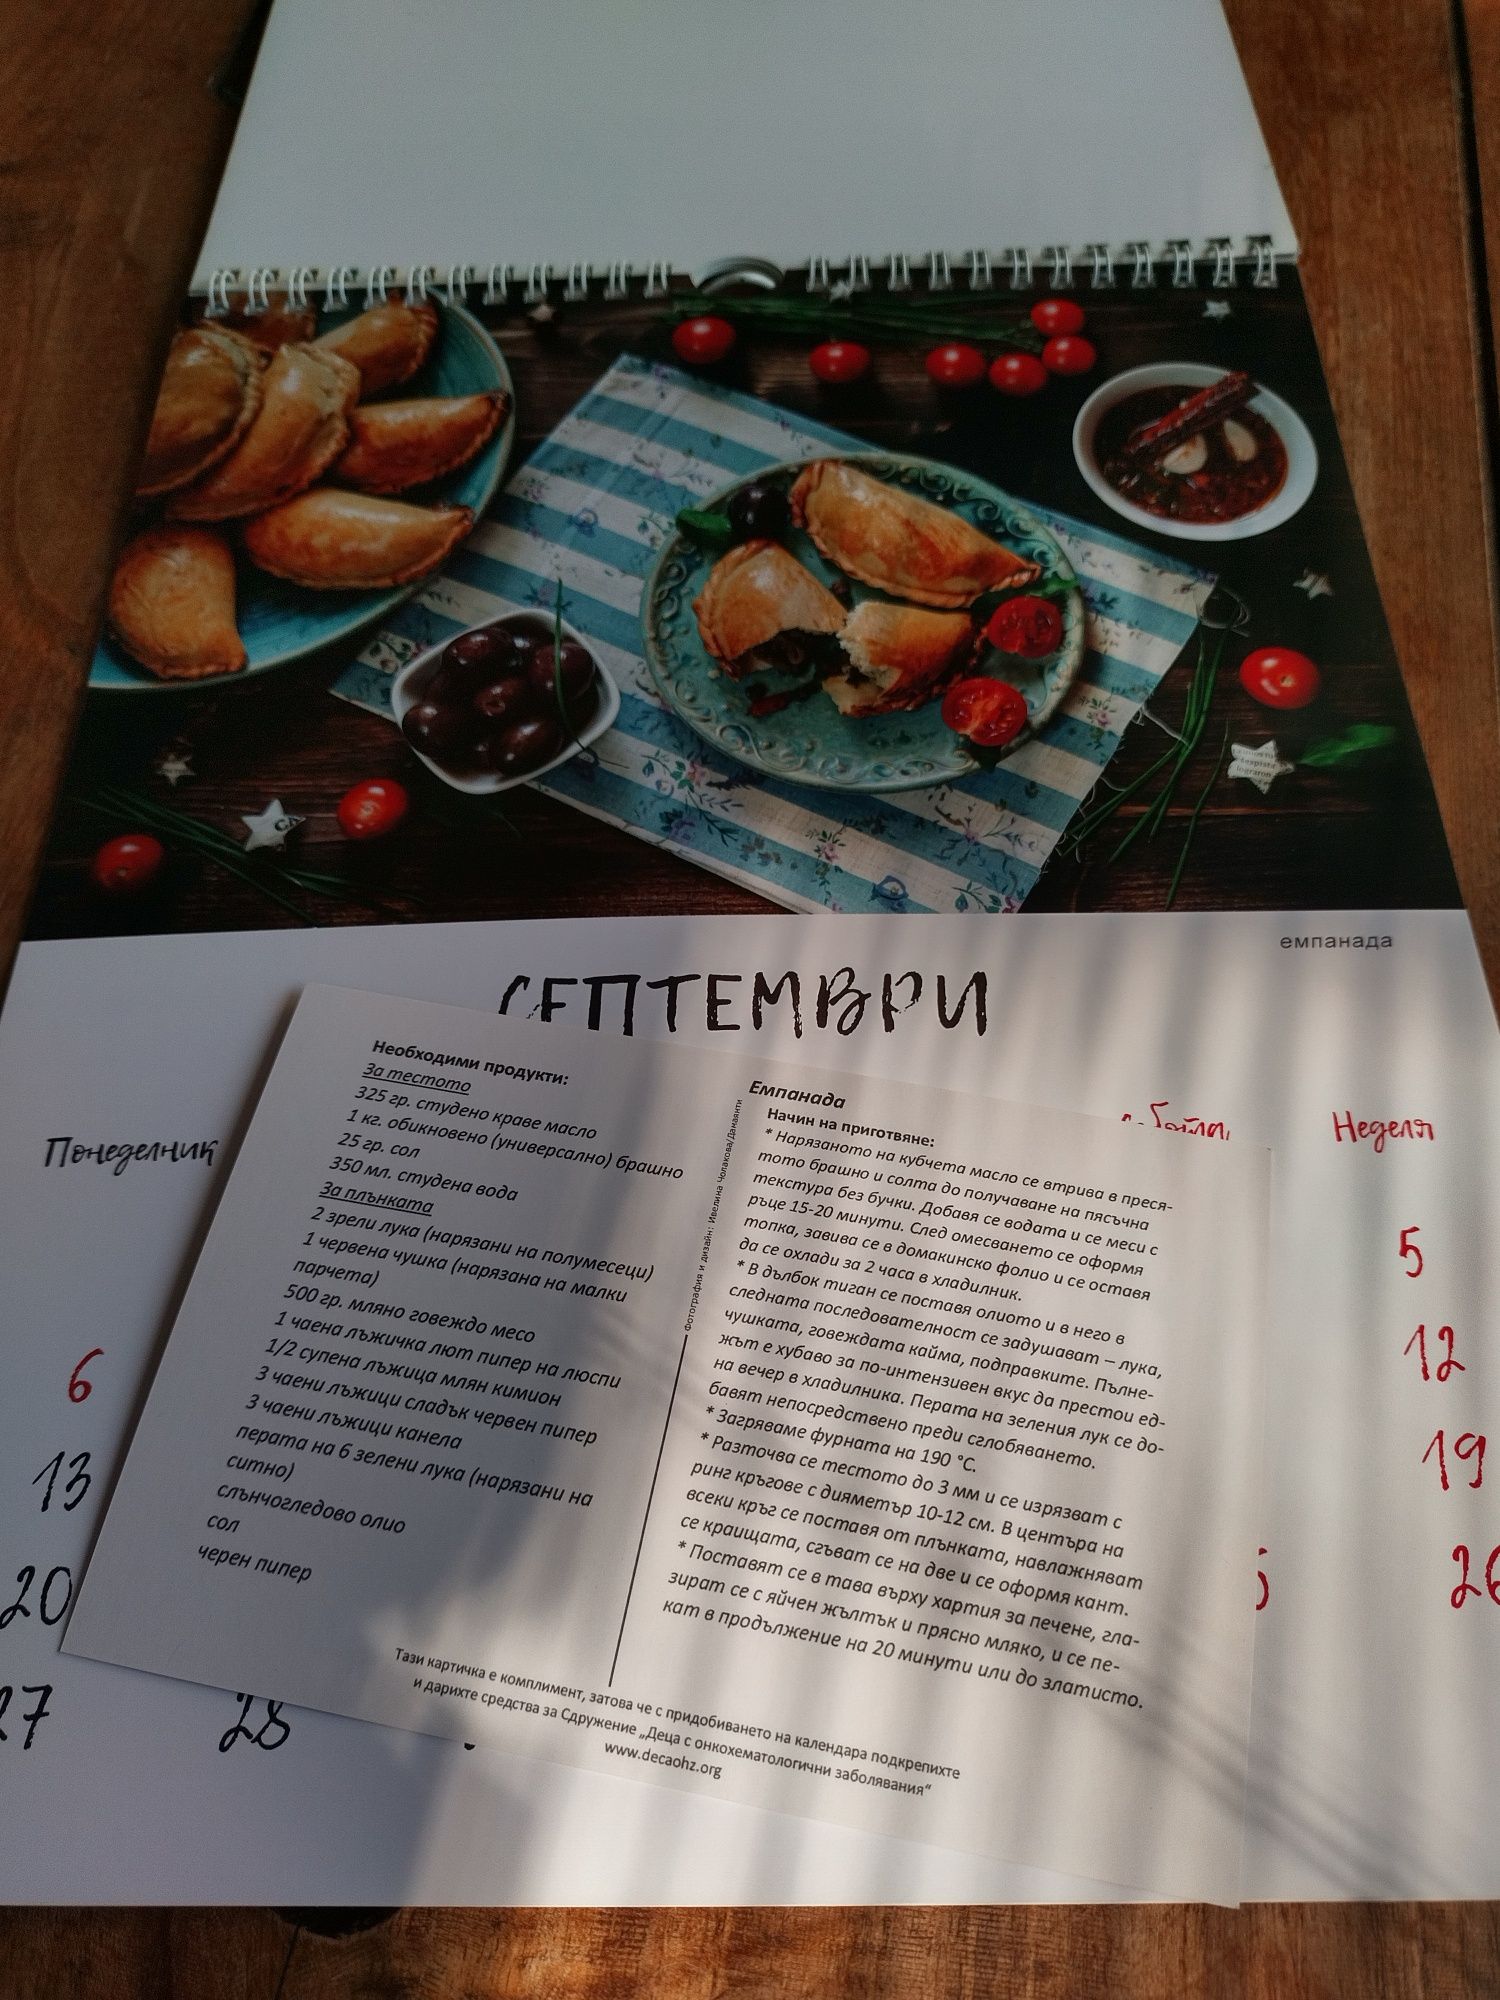 емпанада
СЕПТЕМВРИ
Понеделник
Неделя
5
6
12
13
19
20
26
27
28
Необходими продукти:
За тестото
325 гр. студено краве масло
1 кг. обикновено (универсално) брашно
25 гр. сол
350 мл. студена вода
За плънката
2 зрели лука (нарязани на полумесеци)
1 червена чушка (нарязана на малки
парчета)
500 гр. мляно говеждо месо
1 чаена лъжичка лют пипер на люспи
1/2 супена лъжица млян кимион
3 чаени лъжици сладък червен пипер
3 чаени лъжици канела
перата на 6 зелени лука (нарязани на
ситно)
слънчогледово олио
сол
черен пипер
Фотография и дизайн: Ивелина Чолакова/Дамаянти
Емпанада
Начин на приготвяне:
* Нарязаното на кубчета масло се втрива в преся-
тото брашно и солта до получаване на пясъчна
текстура без бучки. Добавя се водата и се меси с
ръце 15-20 минути. След омесването се оформя
топка, завива се в домакинско фолио и се оставя
да се охлади за 2 часа в хладилник.
* В дълбок тиган се поставя олиото и в него в
следната последователност се задушават – лука,
чушката, говеждата кайма, подправките. Пълне-
жът е хубаво за по-интензивен вкус да престои ед-
на вечер в хладилника. Перата на зеления лук се до-
бавят непосредствено преди сглобяването.
* Загряваме фурната на 190 °C.
* Разточва се тестото до 3 мм и се изрязват с
ринг кръгове с дияметър 10-12 см. В центъра на
всеки кръг се поставя от плънката, навлажняват
се краищата, сгъват се на две и се оформя кант.
* Поставят се в тава върху хартия за печене, гла-
зират се с яйчен жълтък и прясно мляко, и се пе-
кат в продължение на 20 минути или до златисто.
Тази картичка е комплимент, затова че с придобиването на календара подкрепихте
и дарихте средства за Сдружение „Деца с онкохематологични заболявания“
www.decaohz.org